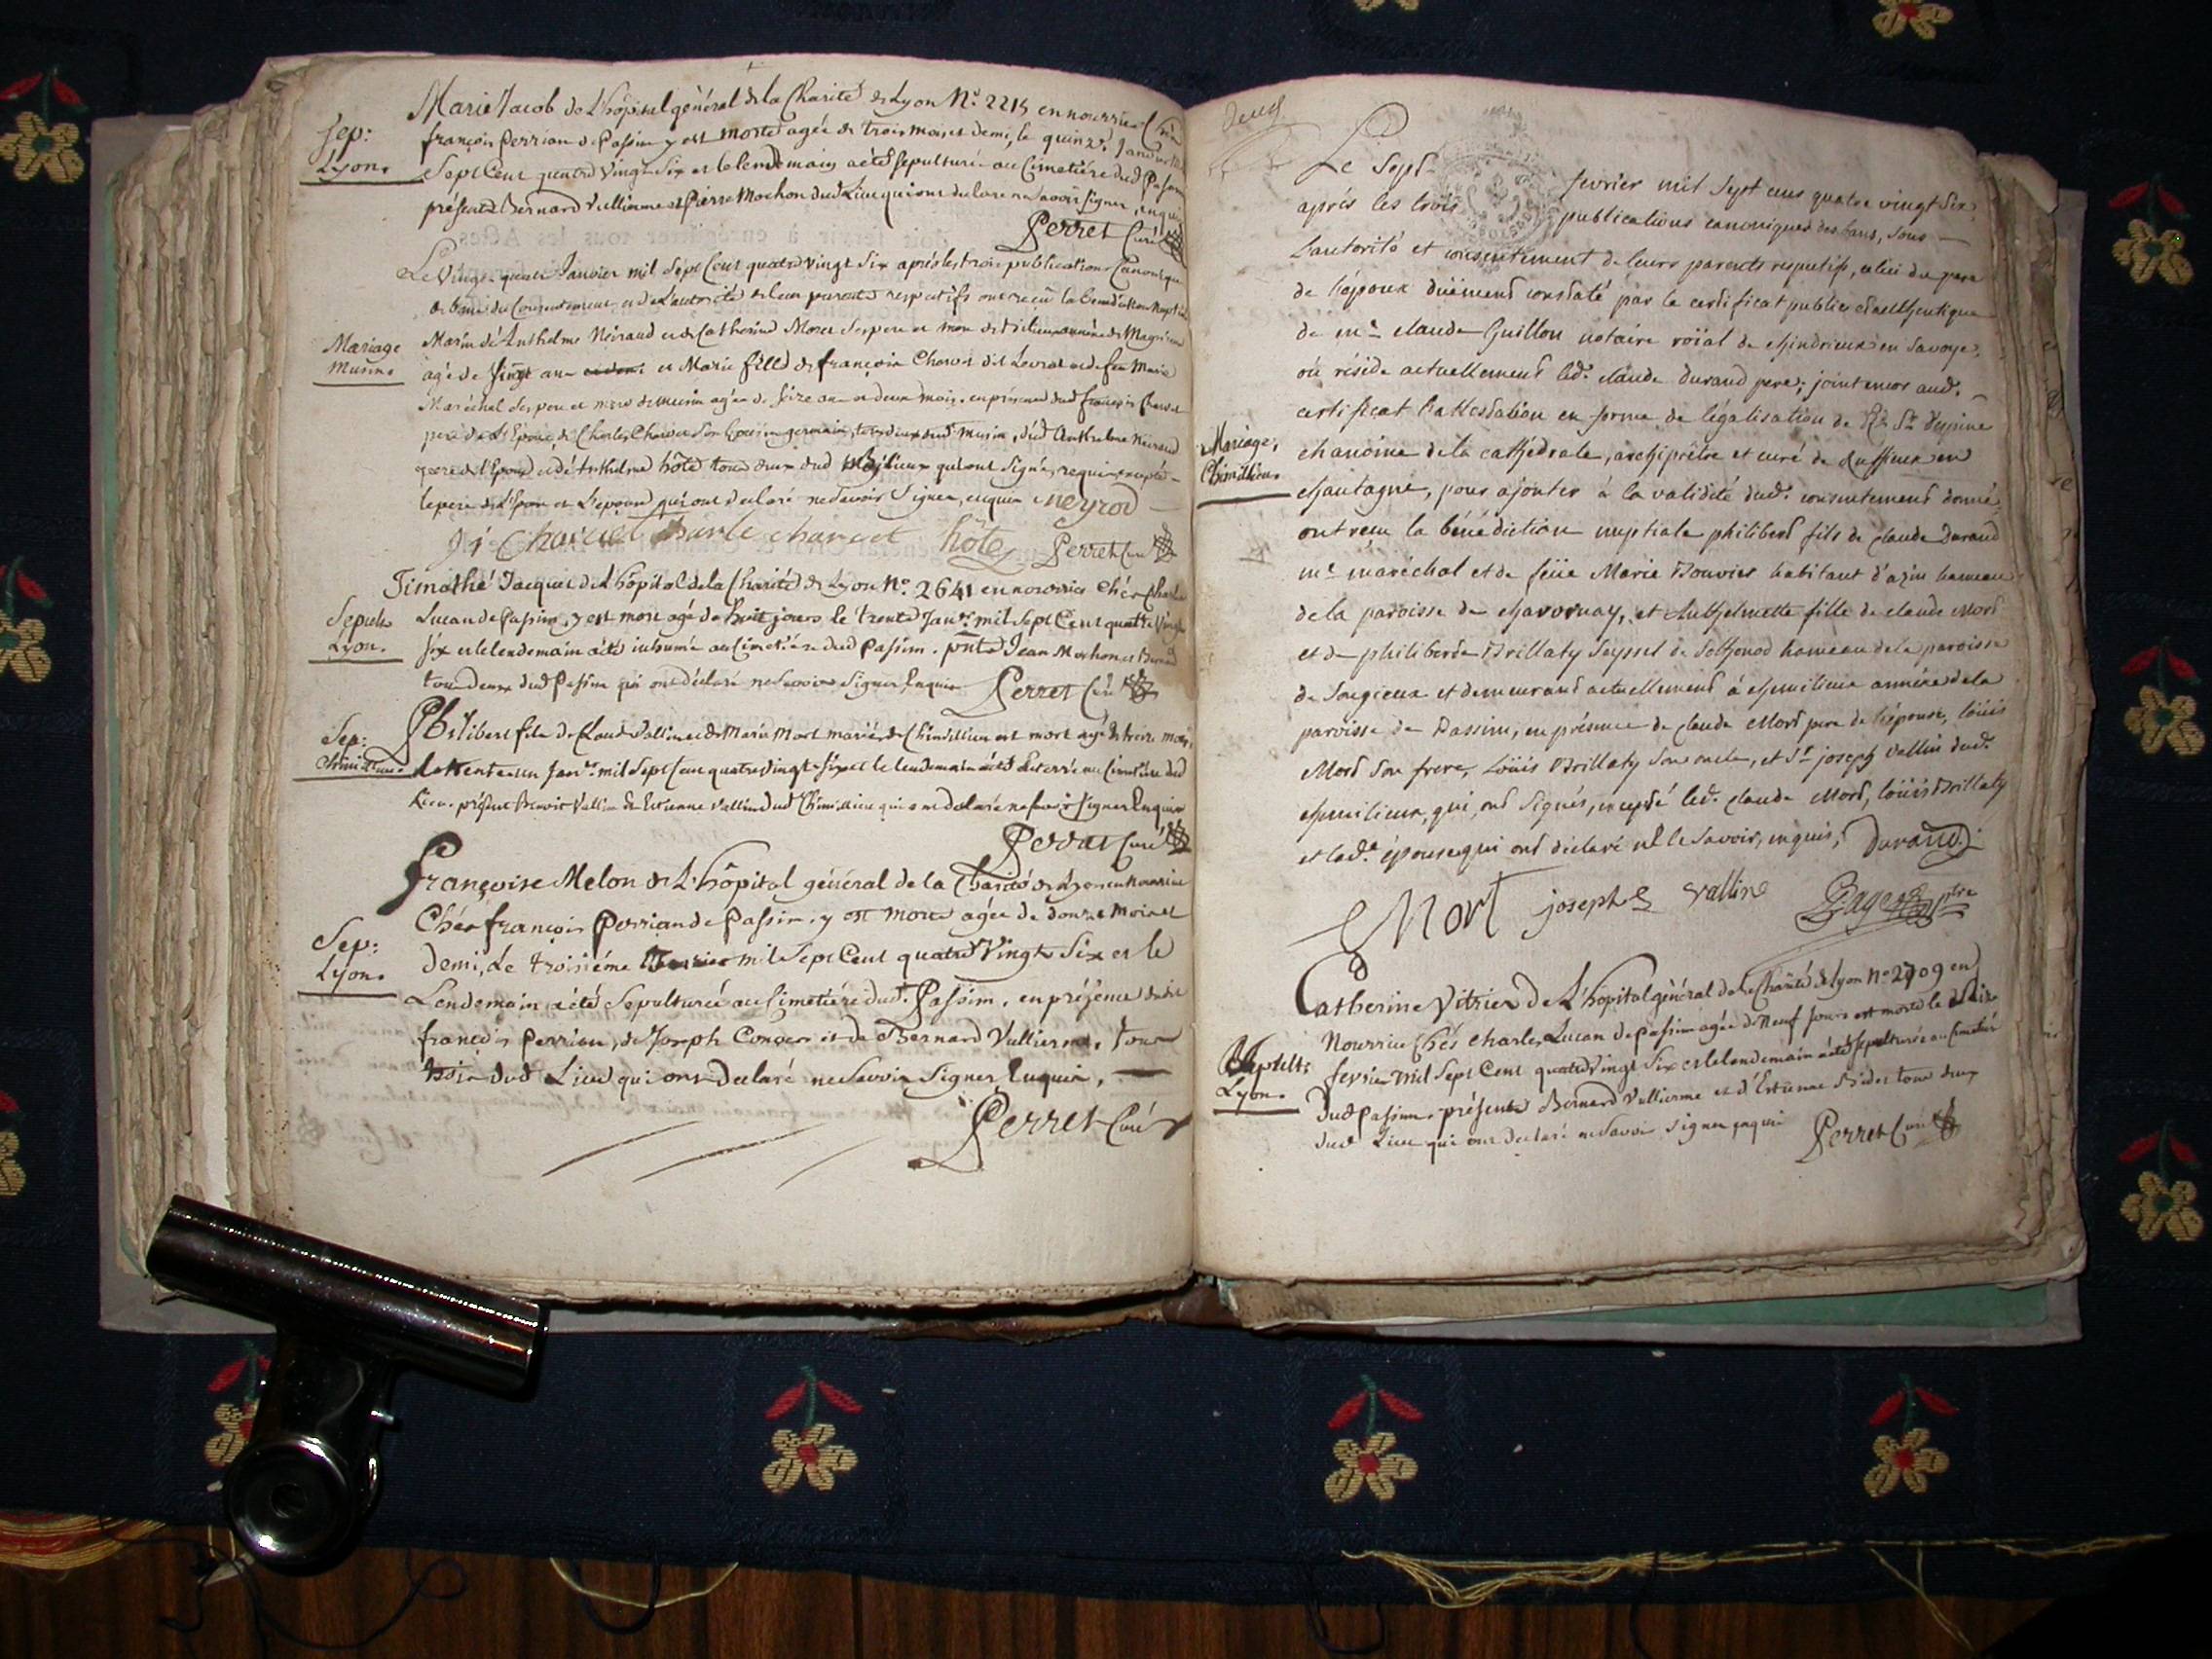 Marie Jacob de L'hôpital général de la Charité de Lyon N.° 2215 en nourrice
Sep:
Lyon.
françois Perrian de Passin y est morte agée de trois mois et demi, le quinze Janvier
Sept Cent quatre Vingt Six et le lendemain a été sepulturée au Cimetière dud Passin
présents Bernard Vullierme et Pierre Mochon dud Lieu qui ont declaré ne Savoir signer, enquis
Perret Curé
Le Vingt quatre Janvier mil Sept Cent quatre vingt Six après les trois publications Canoniques
de bans du Consentement et de L'autorité de leur parents respectifs ont reçu la bénédiction nuptiale
Mariage
Musin.
Marin de Anthelme Neiraud et de Catherine Moret Ses pere et mere de annèxe de Magnieu
agé de Vingt ans et Marie fille de françois Charvet dit Levrat et de feu Marie
Maréchal Ses pere et mere de Musin agée de Seize ans et deux mois, en présence dud françois Charvet
pere de L'Epouse, de Charles Charvet Son Cousin germain, tous deux dud. Musin, dud Anthelme Neiraud
pere de l'Epoux et de Anthelme hôte tous deux dud qui ont Signé, requis excepté
le pere de L'Epoux et L'epouse qui ont declaré ne Savoir Signer, enquis neyrod
Charvet Charle charvet hôte Perret Curé
Timothé Jacques de L'hôpital de la Charité de Lyon N.° 2641 en nourrice Chés Charles
Sepult.
Lyon.
Lucan de Passin, y est mort agé de Huit jours le trente Janv.er mil Sept Cent quatre Vingt
Six et le lendemain a été inhumé au Cimetière dud Passin. pnts Jean Mochon et Bernard
tous deux dud Passin qui ont déclaré ne Savoir Signer Enquis Perret Curé
Sep:
Chimillieu.
Philibert fils de Claude Vallin et de Marie Mort mariés de Chimillieu est mort agé de treize mois
le trente un Janv.er mil Sept Cent quatre Vingt Six et le lendemain a été Enterré au Cimetière dud
Lieu. présent Benoit Vallin & Etienne Vallin dud Chimillieu qui ont declaré ne Savoir signer Enquis
Perret Curé
Françoise Melon de L'hôpital général de la Charité de Lyon en Nourrice
Chés françois Perrian de Passin. y est morte agée de douze mois et
Sep:
Lyon.
demi, Le troisiéme fevrier mil Sept Cent quatre Vingt Six et le
Lendemain a été Sepulturée au Cimetière dud. Passin. en présence dudit
françois Perrian, de Joseph Convers et de Bernard Vullierme. tous
trois dud Lieu qui ont declaré ne Savoir Signer Enquis.
Perret Curé
Deux
Le Sept fevrier mil sept cens quatre vingt six
après les trois publications canoniques des bans, sous
L'autorité et consentiment de leurs parents respectifs, celui du pere
de l'époux düement constaté par le certificat public et authentique
de m.e claude Guillou notaire roïal de chindrieux en Savoye,
où réside actuellement led. claude durand pere; joint encor aud.
certificat l'attestation en forme de légalisation de
Mariage,
Chimillieu.
chanoine de la cathédrale, archiprêtre et curé de Ruffieux en
chautagne, pour ajouter à la validité dud. consentement donné,
ont reçu la bénédiction nuptiale philibert fils de claude Durand
m.e maréchal et de feüe Marie Bouvier habitant d'azin hameau
de la paroisse de chavornay, et Anthelmette fille de claude Mort
et de philiberte Brillaty Seyssel de Sothonod hameau de la paroisse
de Songieux et demeurant actuellement à chimilieux annéxe de la
paroisse de Passin, en présence de claude Mort pere de l'épouse, loüis
Mort son frere, Loüis Brillaty son oncle, et S.r joseph vallin dud.
chimilieux, qui ont signés, excepté led. claude Mort, loüis Brillaty
et lad.e épouse qui ont déclaré ne le savoir, enquis, Durand
Mort joseph vallin Pages ptre
Catherine Vitrier de L'hôpital général de la Charité de Lyon N° 2709 en
Nourrice Chés Charles Lucan de Passin agée de Neuf jours est morte le
Sepult:
Lyon.
fevrier mil Sept Cent quatre Vingt Six et le lendemain a été sepulturée au Cimetière
Dud Passin. présents Bernard Vullierme et d'Estienne Bidet tous deux
dud. Lieu qui ont declaré ne Savoir signer enquis Perret Curé